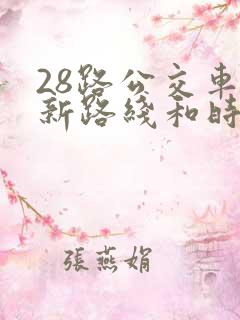 28路公交車
新路綫和時
張燕娟